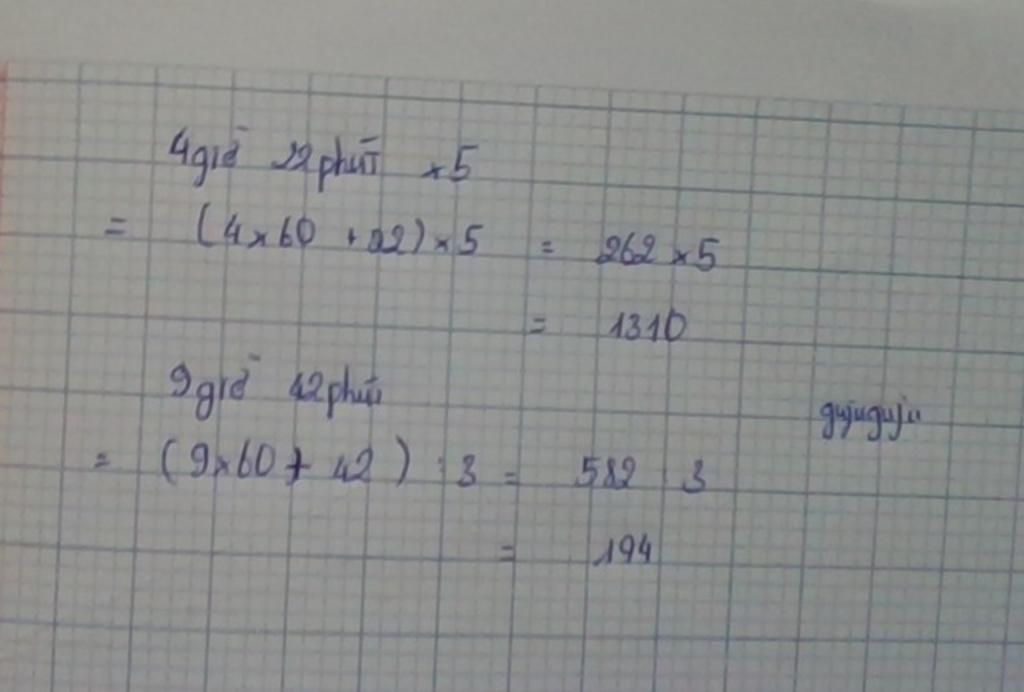 4 giờ 22 phút × 5
= (4 × 60 + 22) × 5 = 262 × 5
= 1310
9 giờ 42 phút
gujuguju
= (9 × 60 + 42) : 3 = 582 : 3
= 194